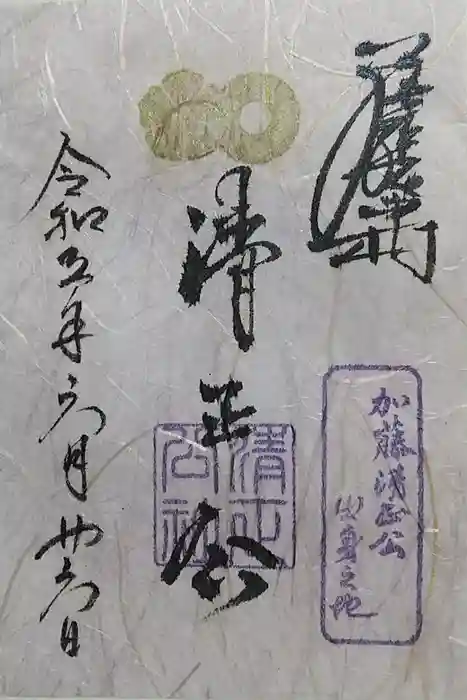 加藤清正公
之地
清正公
清正
公社
令和五年六月廿六日